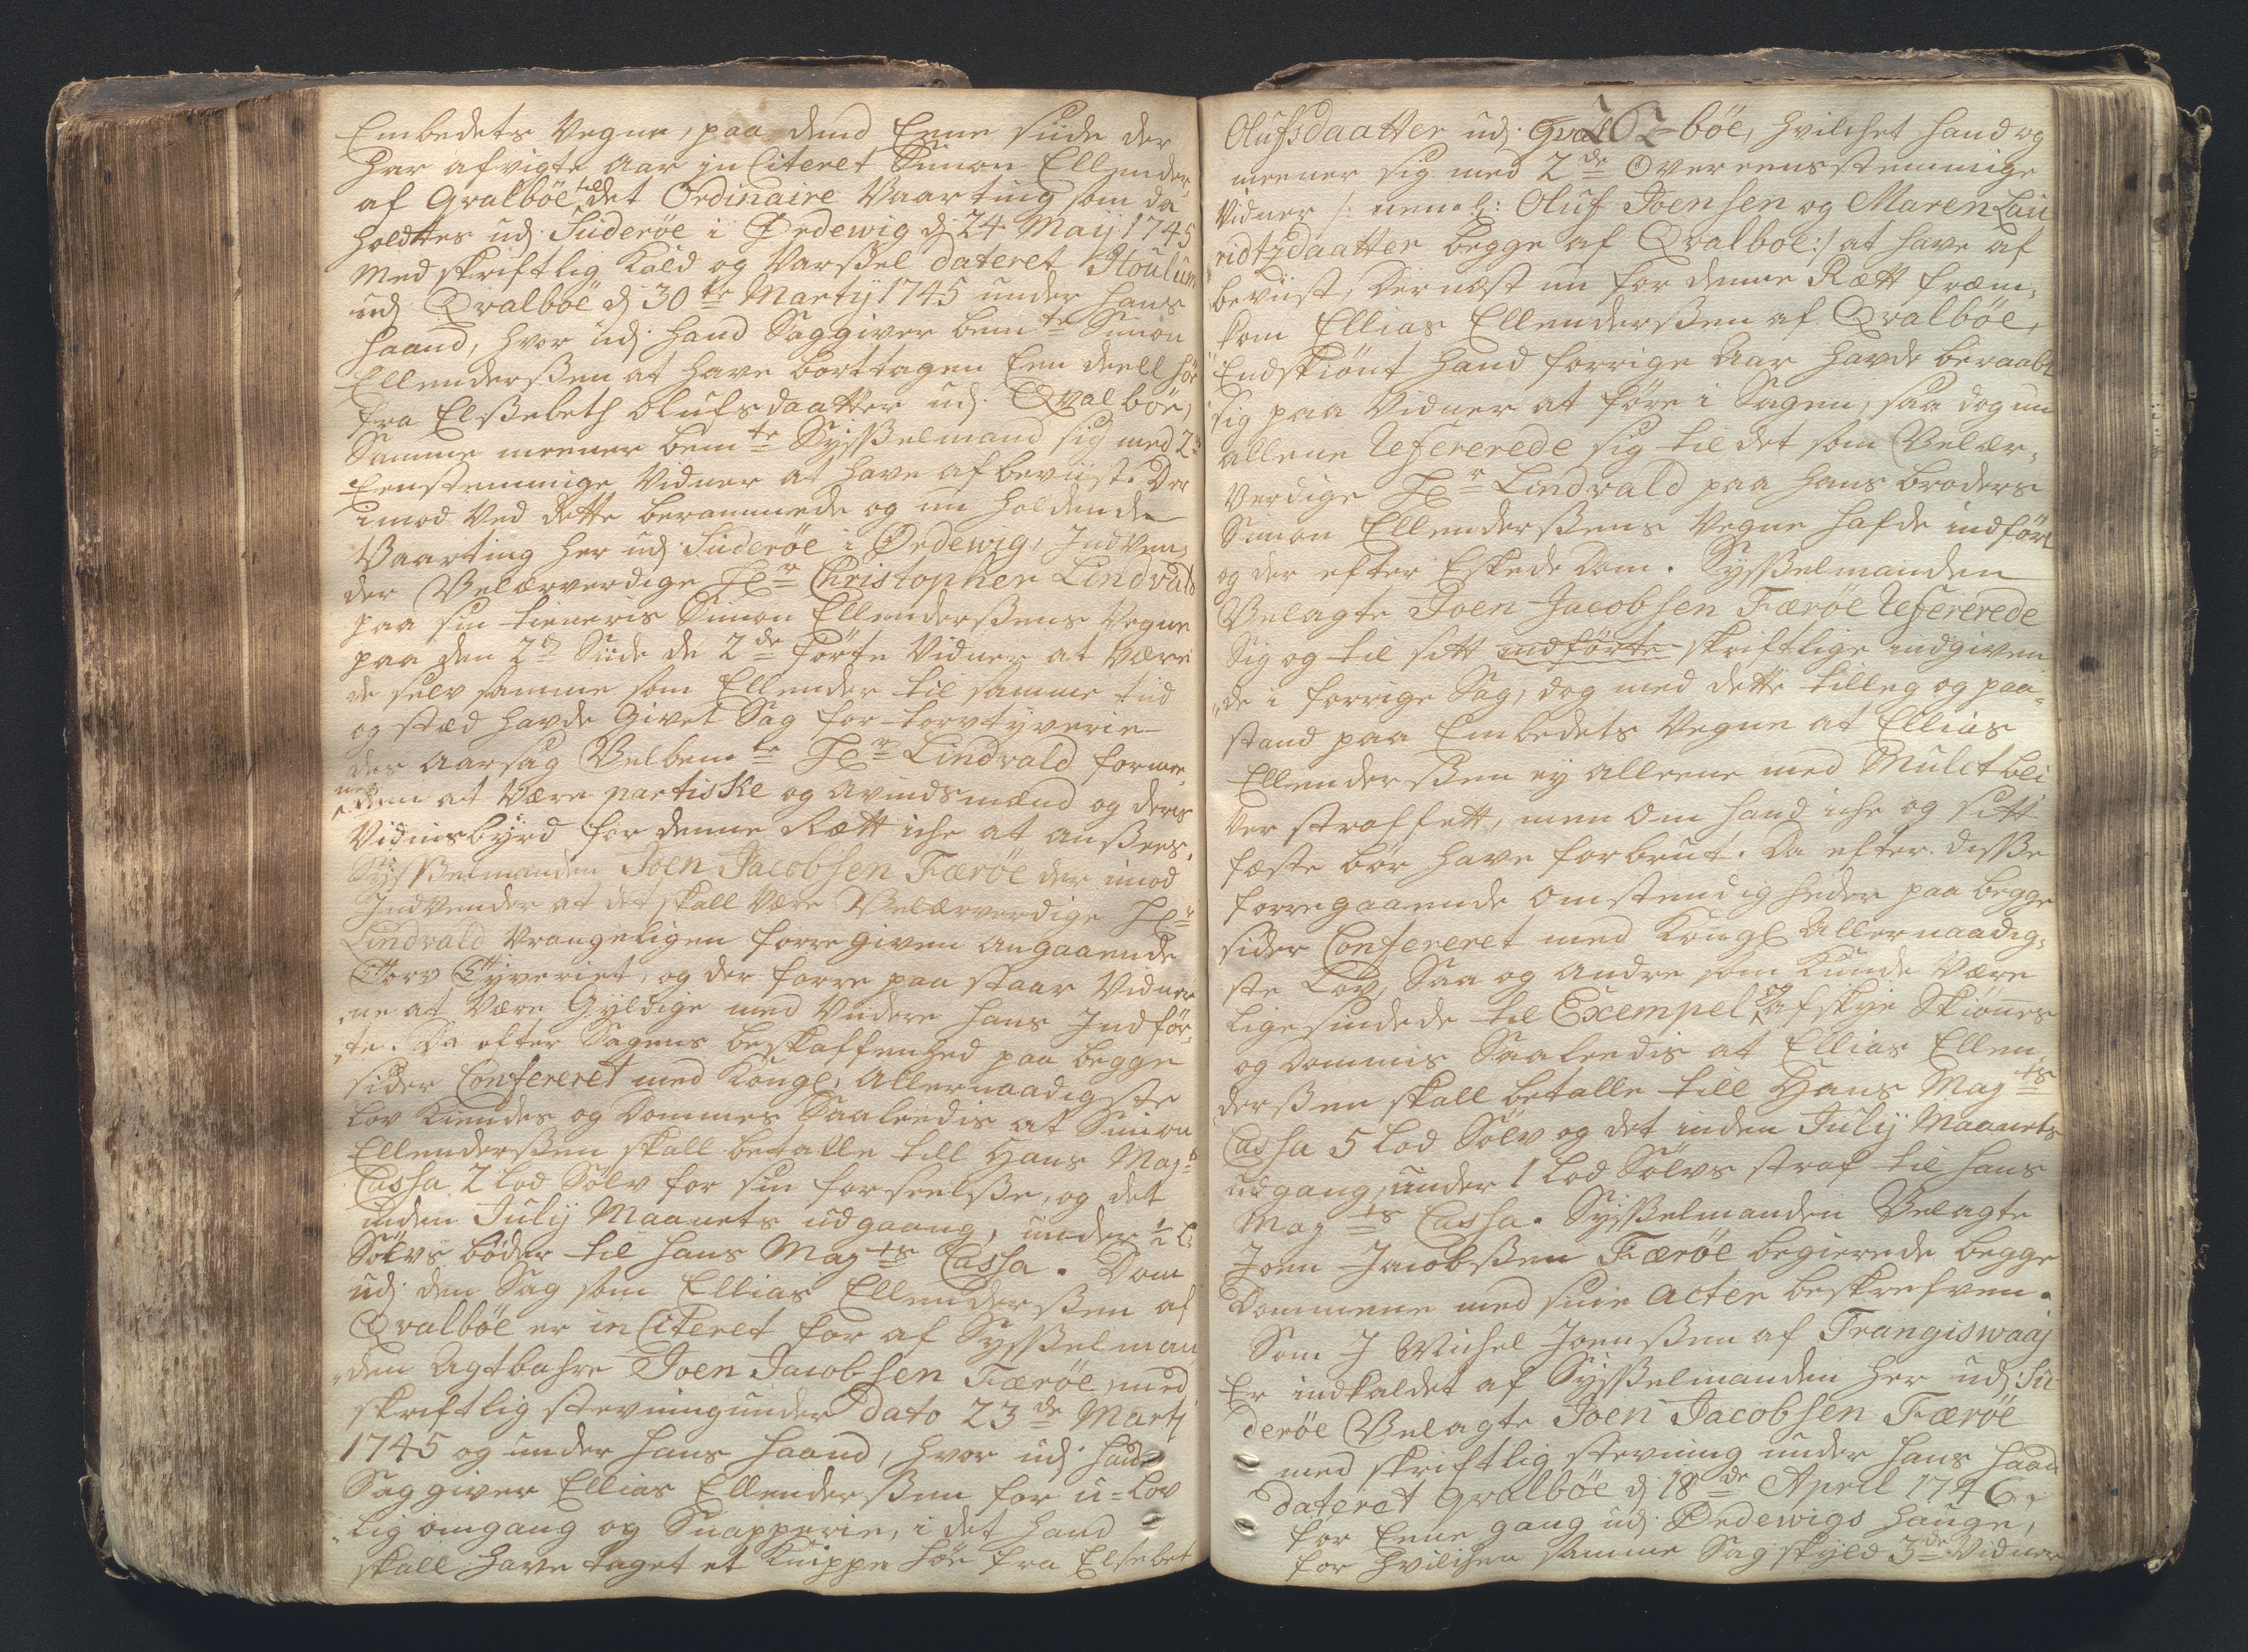 Embedets Vegne, paa dend Eene siide der
har afvigte Aar in Citeret Simon Ellender
af Qvalböe til det Ordinaire Vaarting som da
holdtes udj Suderöe i Ördewig dj 24 Maij 1745
med skriftlig Kald og Varßel dateret Houlum
udj Qvalböe dj 30te Martij 1745 under hans
haand, hvor udj hand Saggiver bemte Simon
Ellenderßen at have borttagen Een deell höe
fra Elßebeth Olufsdaatter udj Qvalböe,
Samme meener bemte Sysßelmand sig med 2de
Eenstemmige Vidner at have afbeviist. Der
imod Ved dette berammede og nu holdende
Vaarting her udj Suderöe i Ördewig, Indven¬
der Velærverdige Hr Christopher Lindvald
paa sin tieneris Simon Ellenderßens Vegne
paa den 2den Side de 2de förte Vidner at Være
de selv samme som Ellender til samme tiid
og stæd havde Givet Sag for torvtyverie
der aarsag Velbemte Hr Lindvald forme¬
ner dem at Være partiske og avindsmænd og deris
Vidnisbyrd for denne Rætt iche at anßees.
Sysßelmanden Joen Jacobsen Færöe der imod
Indvender at det skall Være Velærverdige Hr
Lindvald Vrangeligen forregiven angaaende
Torv Tyveriet, og der forre paa staar Vidner
ne at Være Gyldige med Videre hans Indför¬
te. Da efter Sagens beskaffenhed paa begge
sider Confereret med Kongl: Allernaadigste
Lov Kiendes og Dommes Saaleedis at Simon
Ellenderßen skall betalle till Hans Mayts
Cassa 2 Lod Sölv for sin forseelße, og det
inden Julij Maanets udgaang, under ½ L:
Sölvs böder til hans Mayts Cassa. Dom
udj den Sag som Ellias Ellenderßen af
Qvalböe er in Citeret for af Sysßelman
den Agtbahre Joen Jacobsen Færöe, med
skriftlig stevning under Dato 23de Martj
1745 og under hans haand, hvor udj hand
Saggiver Ellias Ellenderßen for u=lov
lig omgang og Snapperie, i det hand
skall have taget et Knippe höe fra Elsebet
Olufsdaatter udj Qval 62 böe, hvilchet hand og
meener sig med 2de Overeensstemmige
Vidner /: neml: Oluf Joensen og Maren Lau
ridtzdaatter begge af Qvalboe :/ at have af
beviist, Dernæst nu for denne Rætt fræm¬
kom Ellias Ellenderßen af Qvalböe,
Endskiönt hand forrige Aar havde beraabt
sig paa Vidner at före i Sagen, saa dog nu
allene Refererede sig til det som Velær¬
Verdige Hr Lindvald paa hans broders
Simon Ellenderßens Vegne hafde indfört
og der efter Eskede Dom. Sysßelmanden
Velagte Joen Jacobsen Færöe Refererede
Sig og til sitt indförte skriftlige indgiven
de i forrige Sag, dog med dette tilleg og paa¬
stand paa Embedets Vegne at Ellias
Ellenderßen ej alleene med Mulct bli
ver straffett, men om hand iche og sitt
fæste bör have forbrut. Da efter disße
forregaaende omstendigheder paa begge
sider Confereret med Kongl Allernaadig¬
ste Lov, Saa og andre som Kunde Være
ligesindede til Exempel og afskye Skiönnes
og Dommis Saaleedis at Ellias Ellen¬
derßen skall betalle till Hans Mayts
Cassa 5 Lod Sölv og det inden Julij Maanets
udgang, under 1 Lod Sölvs straf til hans
Mayts Cassa. Sysßelmanden Velagte
Joen Jacobßen Færöe begierede begge
Dommene med sine acter beskrefven.
Som J Michel Joenßen af Frangiswaaj
Er indkaldet af Sysßelmanden her udj Su
deröe Velagte Joen Jacobsen Færöe
med skriftlig stevning under hans haand
dateret Qvalböe dj 18de April 1746,
for Eene gang udj Ördewigs hauge,
for hvilchen samme Sag skyld 3de Vidner